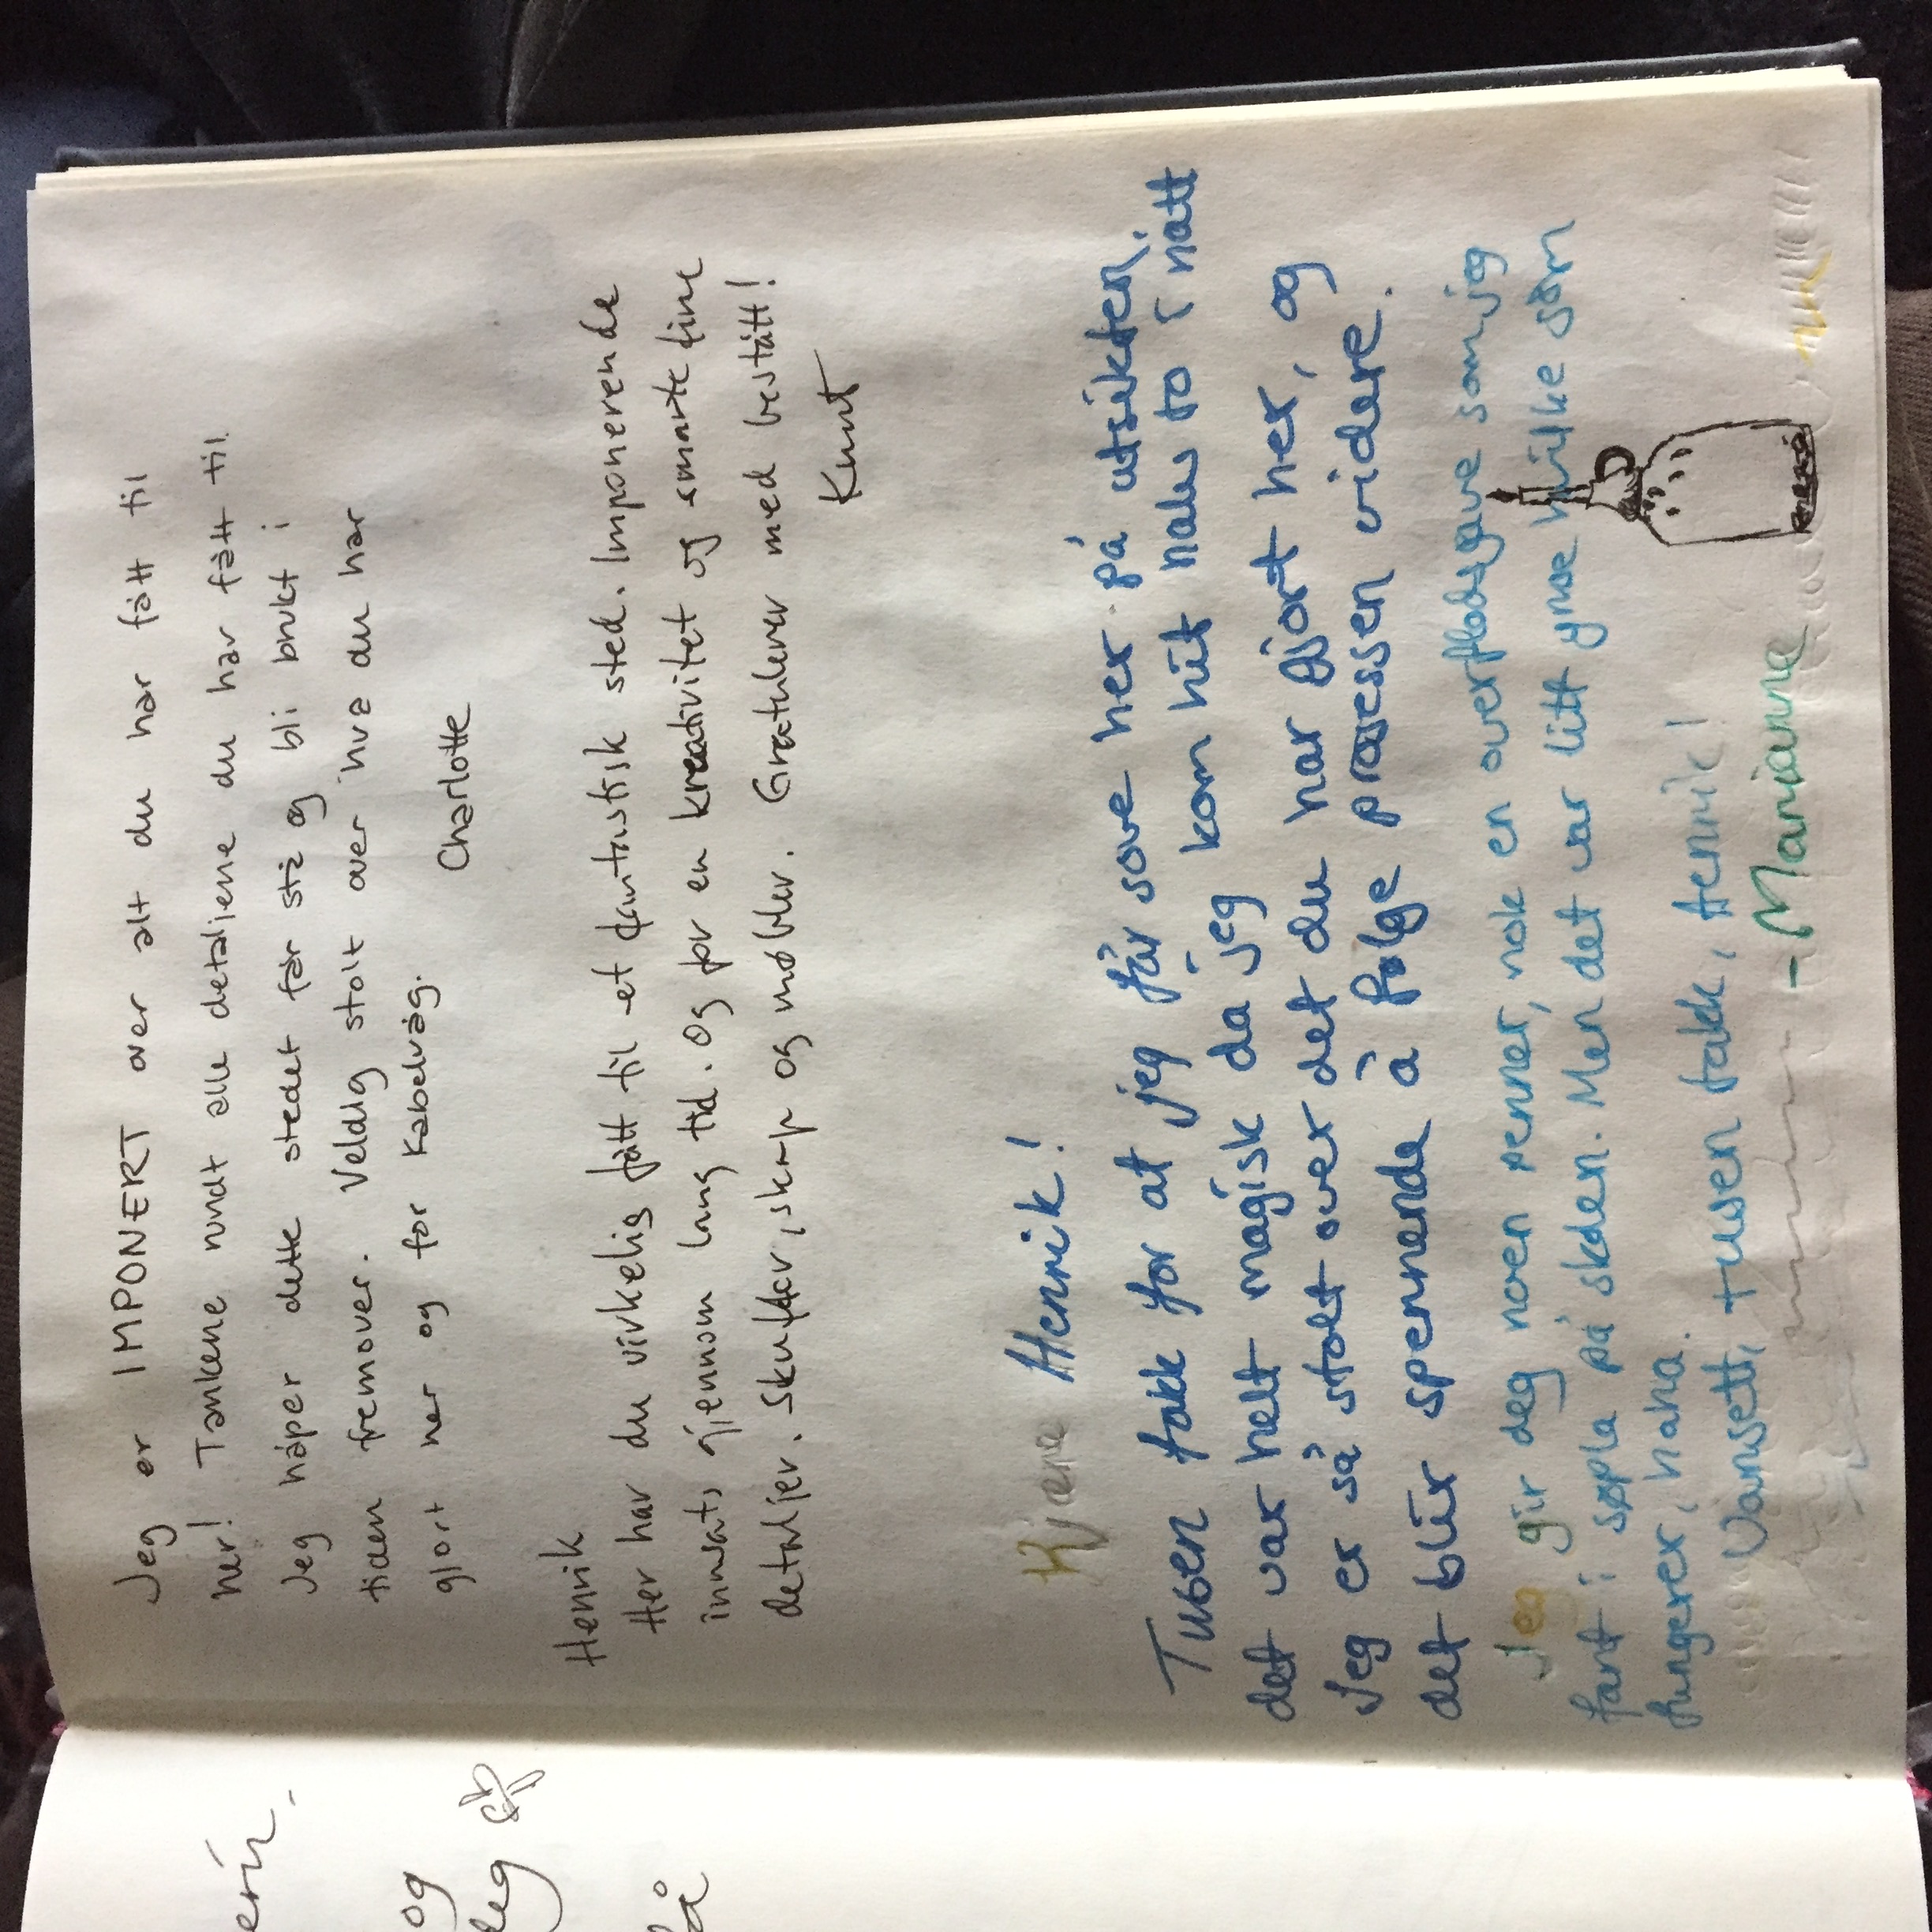 Jeg er IMPONERT over alt du har fått til
her! Tankene rundt alle detaljene du har fått til.
Jeg håper dette stedet får stå og bli brukt i
tiden fremover. Veldig stolt over hva du har
gjort her og for Kabelvåg.
Charlotte
Henrik
Her har du virkelig fått til et fantastisk sted. Imponerende
innsats gjennom lang tid. Og for en kreativitet og smarte fine
detaljer. Skuffer, skap og møbler. Gratulerer med bestått!
Knut
Kjære Henrik!
Tusen takk for at jeg får sove her på utsikten,
det var helt magisk da jeg kom hit natt to i natt
Jeg er så stolt over det du har gjort her, og
det blir spennende å følge prosessen videre.
Jeg gir deg noen penner, nok en overflodsgave som jeg
fant i søpla på skolen. Men det var litt ymse hvilke som
fungerer, haha.
Uansett, tusen takk, Henrik!
- Marianne
erir
og
deg
så